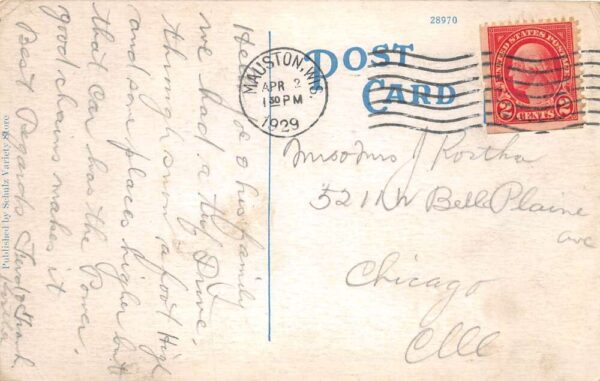 28970
POST
CARD
MAUSTON, WIS.
APR 2
1 30 PM
1929
UNITED STATES POSTAGE
2 CENTS 2
& his family
we had a tuf Drive,
through snow a foot High
and some places higher but
that car has the Power,
good chains makes it
Best Regards
Mr & Mrs J
Belle Plaine
ave
Chicago
Ill
Published by Schulz Variety Store